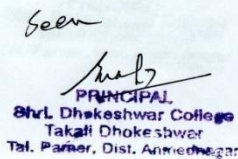 Seen
PRINCIPAL
Shri. Dhokeshwar College
Takali Dhokeshwar
Tal. Parner, Dist. Ahmednagar